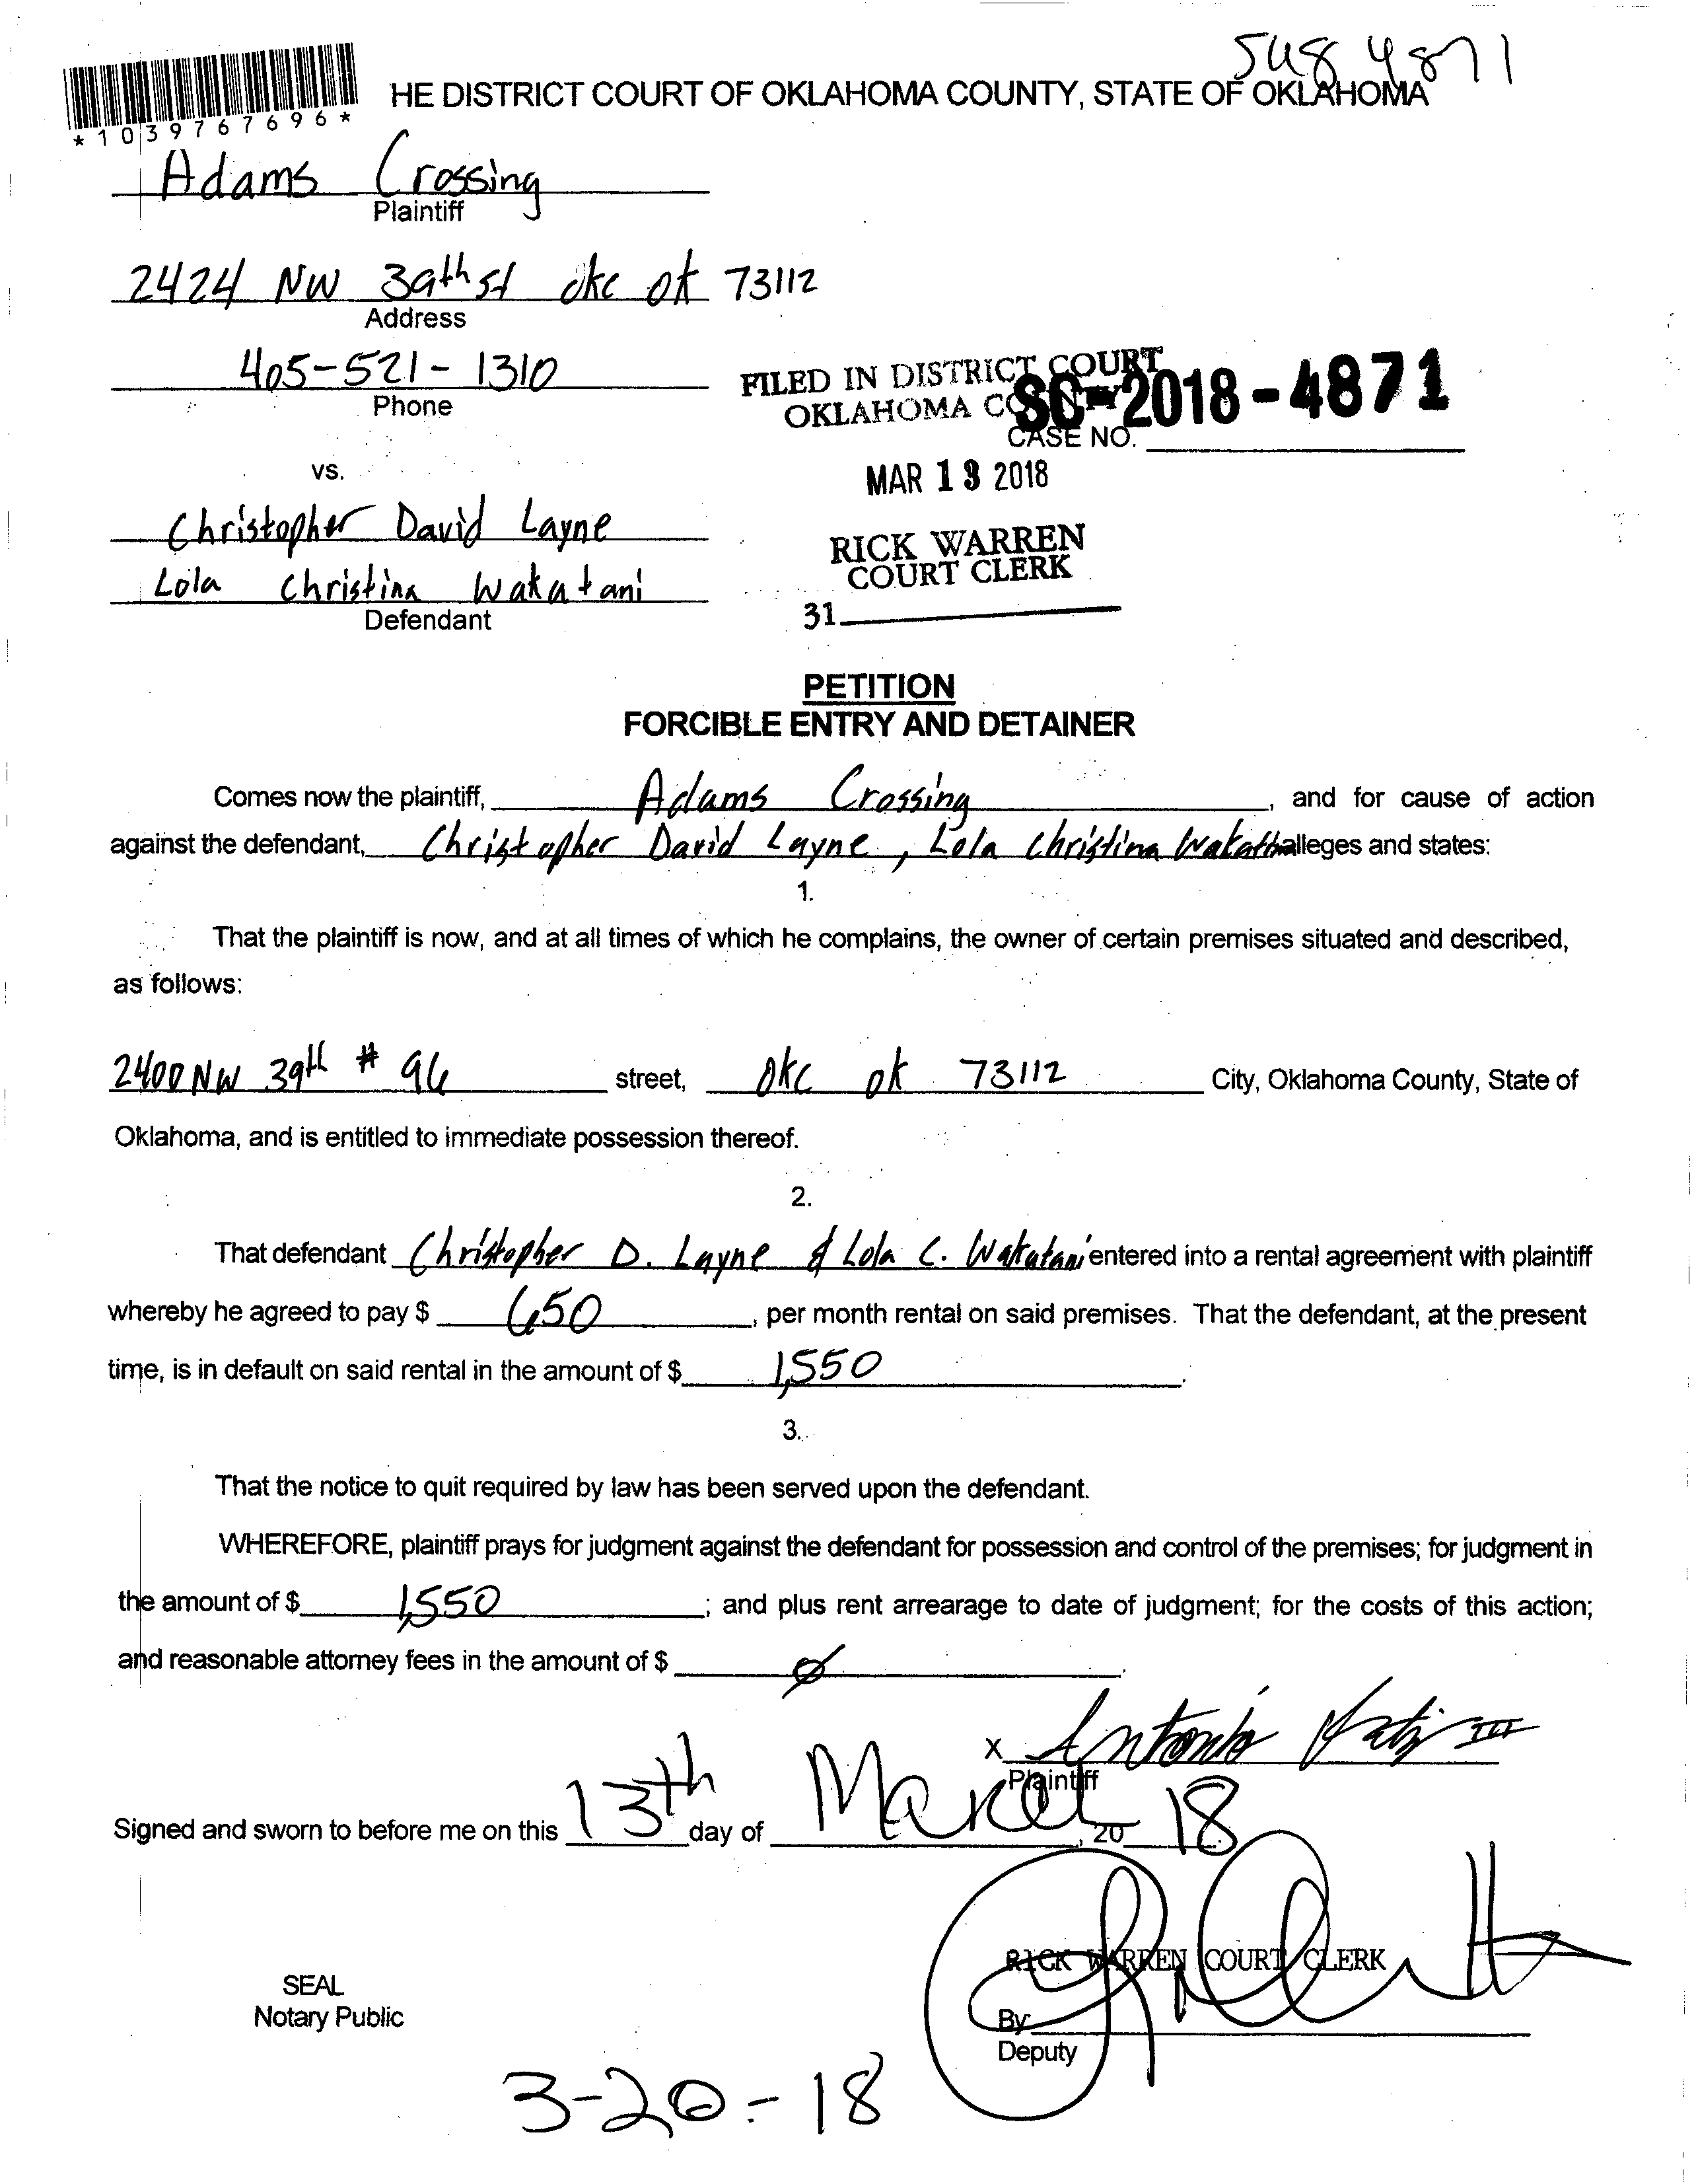 SUS 4871
HE DISTRICT COURT OF OKLAHOMA COUNTY, STATE OF OKLAHOMA
*1039767696*
Adams Crossing
Plaintiff
2424 NW 39th st okc ok 73112
Address
405-521-1310
Phone
FILED IN DISTRICT COURT
OKLAHOMA
SC-2018-4871
CASE NO.
MAR 13 2018
vs.
Christopher David Layne
RICK WARREN
COURT CLERK
Lola Christina Wakatani
Defendant
31
PETITION
FORCIBLE ENTRY AND DETAINER
Comes now the plaintiff, Adams Crossing, and for cause of action
against the defendant, Christopher David Layne, Lola Christina alleges and states:
1.
That the plaintiff is now, and at all times of which he complains, the owner of certain premises situated and described,
as follows:
2400 NW 39th # 96 street, OKC ok 73112 City, Oklahoma County, State of
Oklahoma, and is entitled to immediate possession thereof.
2.
That defendant Christopher D. Layne & Lola C. Wakatani entered into a rental agreement with plaintiff
whereby he agreed to pay $ 650, per month rental on said premises. That the defendant, at the present
time, is in default on said rental in the amount of $ 1,550.
3.
That the notice to quit required by law has been served upon the defendant.
WHEREFORE, plaintiff prays for judgment against the defendant for possession and control of the premises; for judgment in
the amount of $ 1,550; and plus rent arrearage to date of judgment; for the costs of this action;
and reasonable attorney fees in the amount of $ ø.
X Antonio III
Plaintiff
Signed and sworn to before me on this 13th day of March, 20 18.
RICK WARREN COURT CLERK
SEAL
Notary Public
By
Deputy
3-20-18